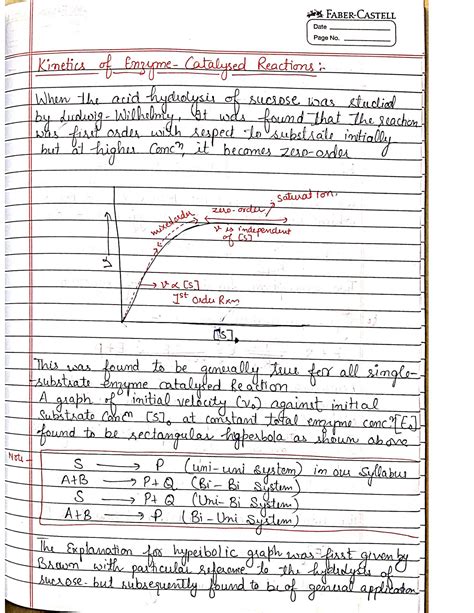 FABER-CASTELL
Date
Page No.
Kinetics of Enzyme-Catalysed Reactions:-
When the acid hydrolysis of sucrose was studied
by Ludwig-Wilhelmy, it was found that the reaction
was first order with respect to substrate initially
but at higher Concⁿ, it becomes zero-order
saturation.
zero-order
mixed order
v is independent
of [S]
v
v ∝ [S]
1st Order Rxn
[S]₀
This was found to be generally true for all single-
substrate enzyme catalysed Reaction
A graph of initial velocity (v₀) against initial
Substrate Concⁿ [S]₀ at constant total enzyme concⁿ [E₀]
found to be rectangular hyperbola as shown above
Note -
S → P (uni-uni system) in our syllabus
A+B → P+Q (Bi-Bi System)
S → P+Q (Uni-Bi System)
A+B → P (Bi-Uni System)
The Explanation for hyperbolic graph was first given by
Brown with particular reference to the hydrolysis of
sucrose but subsequently found to be of general application